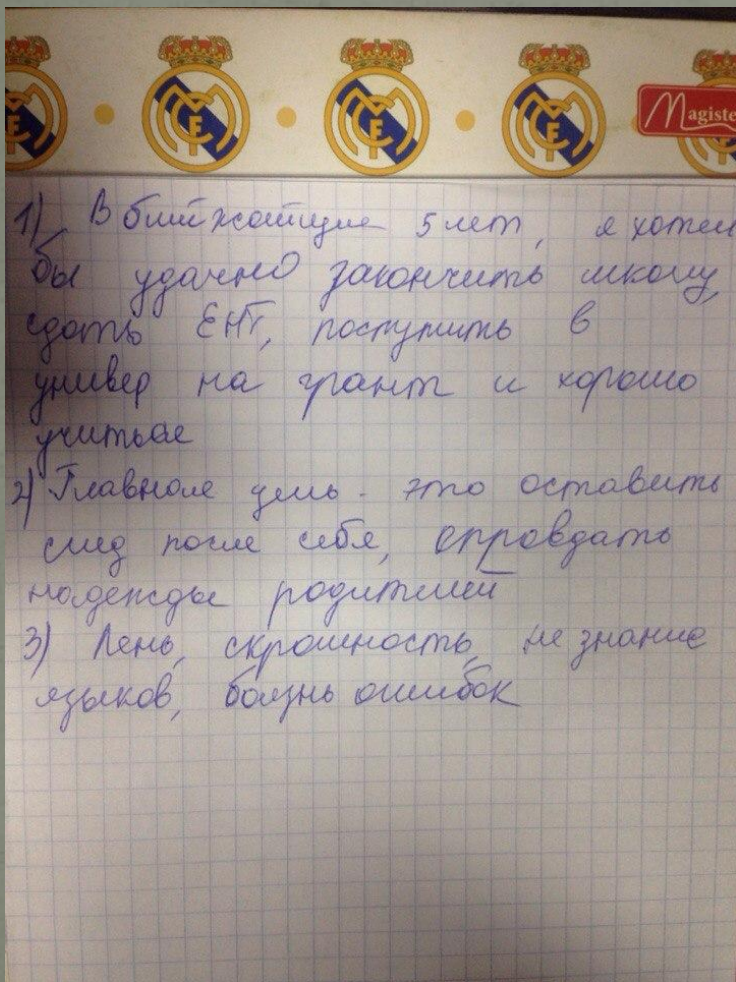 Magiste
1) В ближайщие 5 лет, я хотел
бы удачно закончить школу,
сдать ЕНТ, поступить в
универ на грант и хорошо
учиться
2) Главное цель - это оставить
след после себя, оправдать
надежды родителей
3) Лень, скромность, не знание
языков, боязнь ошибок